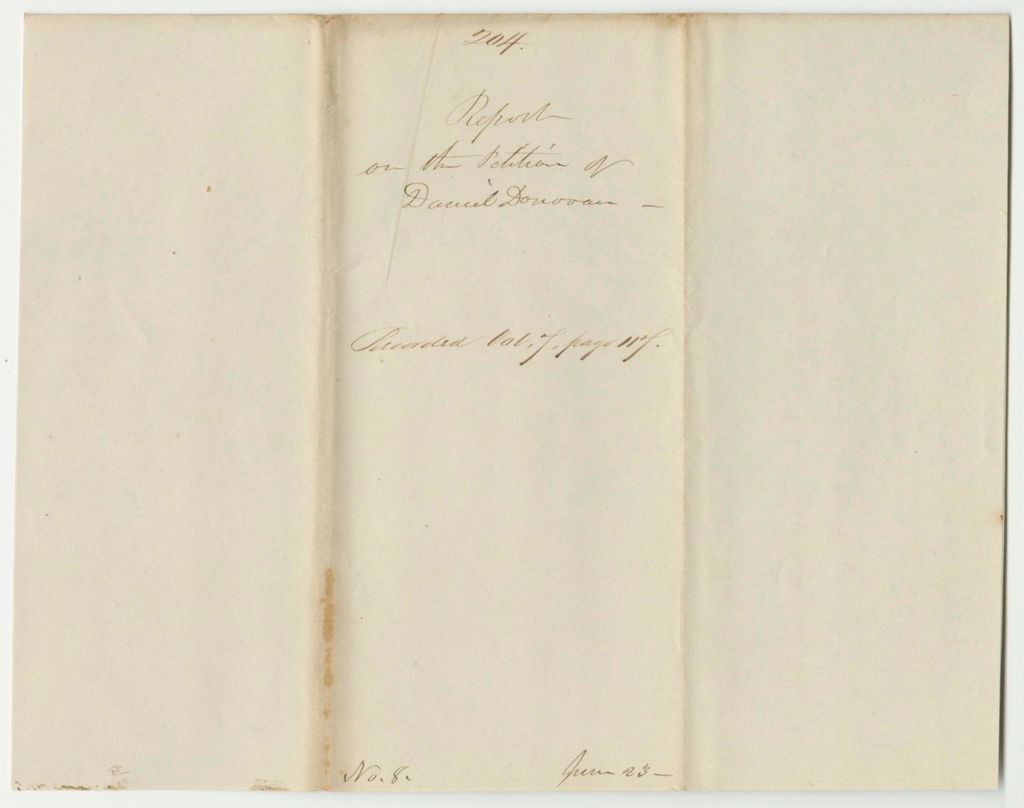 204.
Report
on the Petition of
Daniel Donovan —
Recorded Vol, 7, page 117.
No. 8. June 23 —